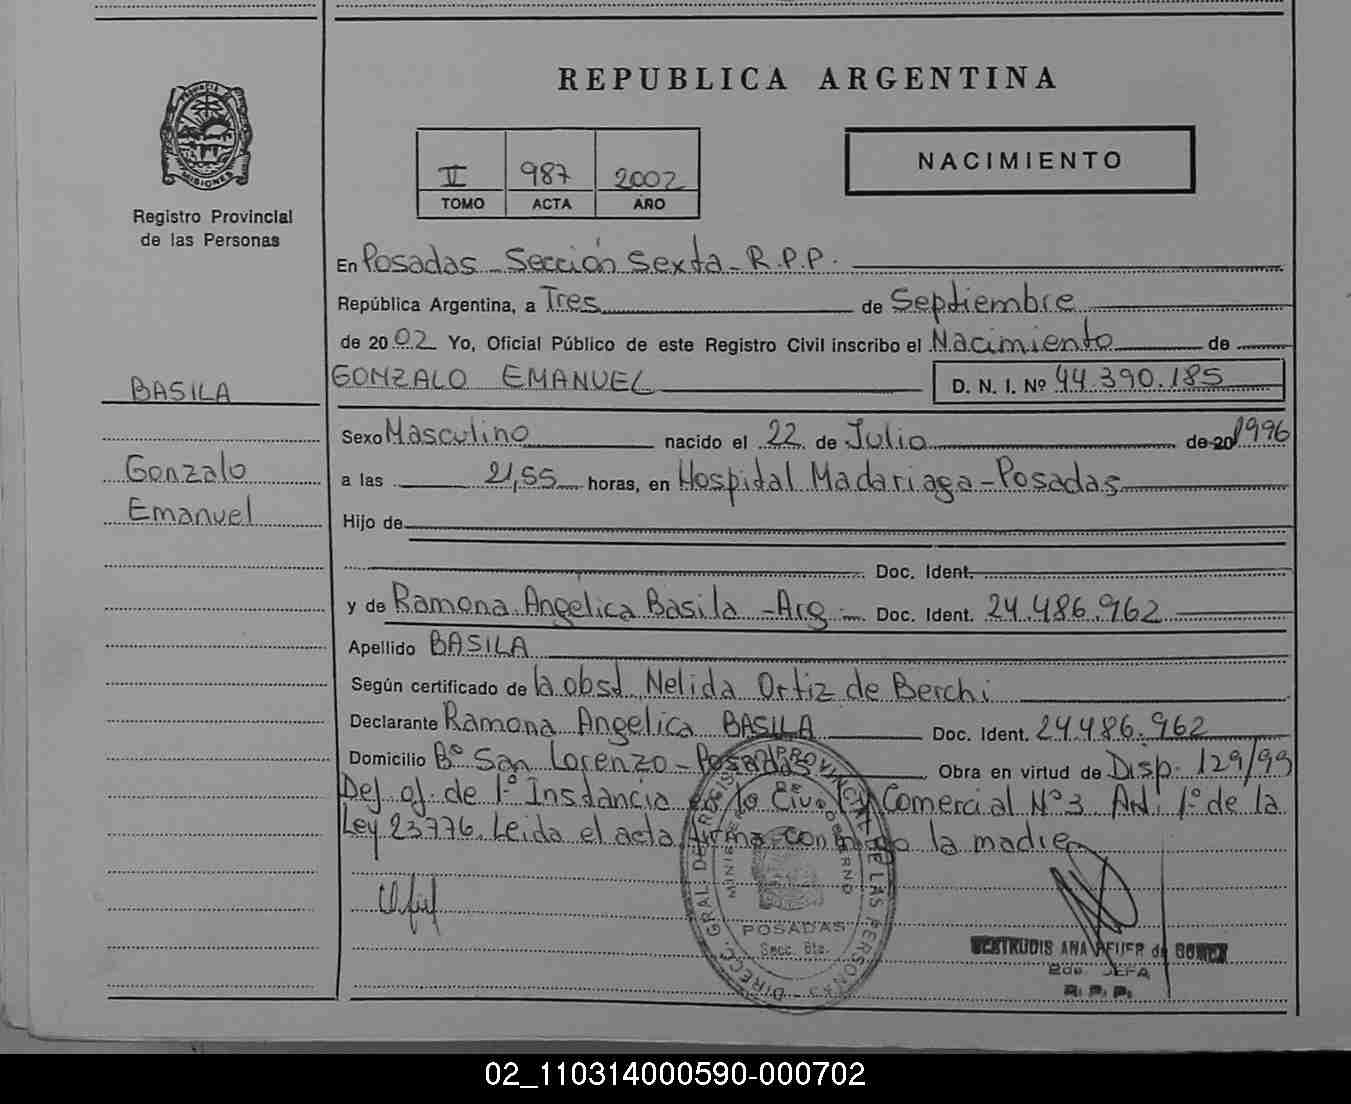 REPUBLICA ARGENTINA
PROVINCIA DE
MISIONES
Registro Provincial
de las Personas
II 987 2002
TOMO ACTA AÑO
NACIMIENTO
En Posadas - Sección Sexta - R.P.P.
República Argentina, a Tres de Septiembre
de 2002 Yo, Oficial Público de este Registro Civil inscribo el Nacimiento de
GONZALO EMANUEL D. N. I. Nº 44.390.185
BASILA
Gonzalo
Emanuel
Sexo Masculino nacido el 22 de Julio de 20 1996
a las 21,55 horas, en Hospital Madariaga - Posadas
Hijo de
Doc. Ident.
y de Ramona Angélica Basila - Arg - Doc. Ident. 24.486.962
Apellido BASILA
Según certificado de la obst. Nelida Ortiz de Berchi
Declarante Ramona Angelica BASILA Doc. Ident. 24.486.962
Domicilio Bº San Lorenzo - Posadas Obra en virtud de Disp. 129/99
Def. of. de 1º Instancia en lo Civ. Comercial Nº 3 Art. 1º de la
Ley 23776. Leida el acta firma conmigo la madre
DIRECC. GRAL. DE REGISTRO PROVINCIAL DE LAS PERSONAS
MINISTERIO DE GOBIERNO
POSADAS
Secc. 6ta.
GERTRUDIS ANA de
2da. JEFA
R. P. P.
02_110314000590-000702